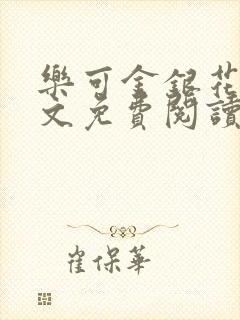 樂可金銀花
文免費閱讀
崔保華